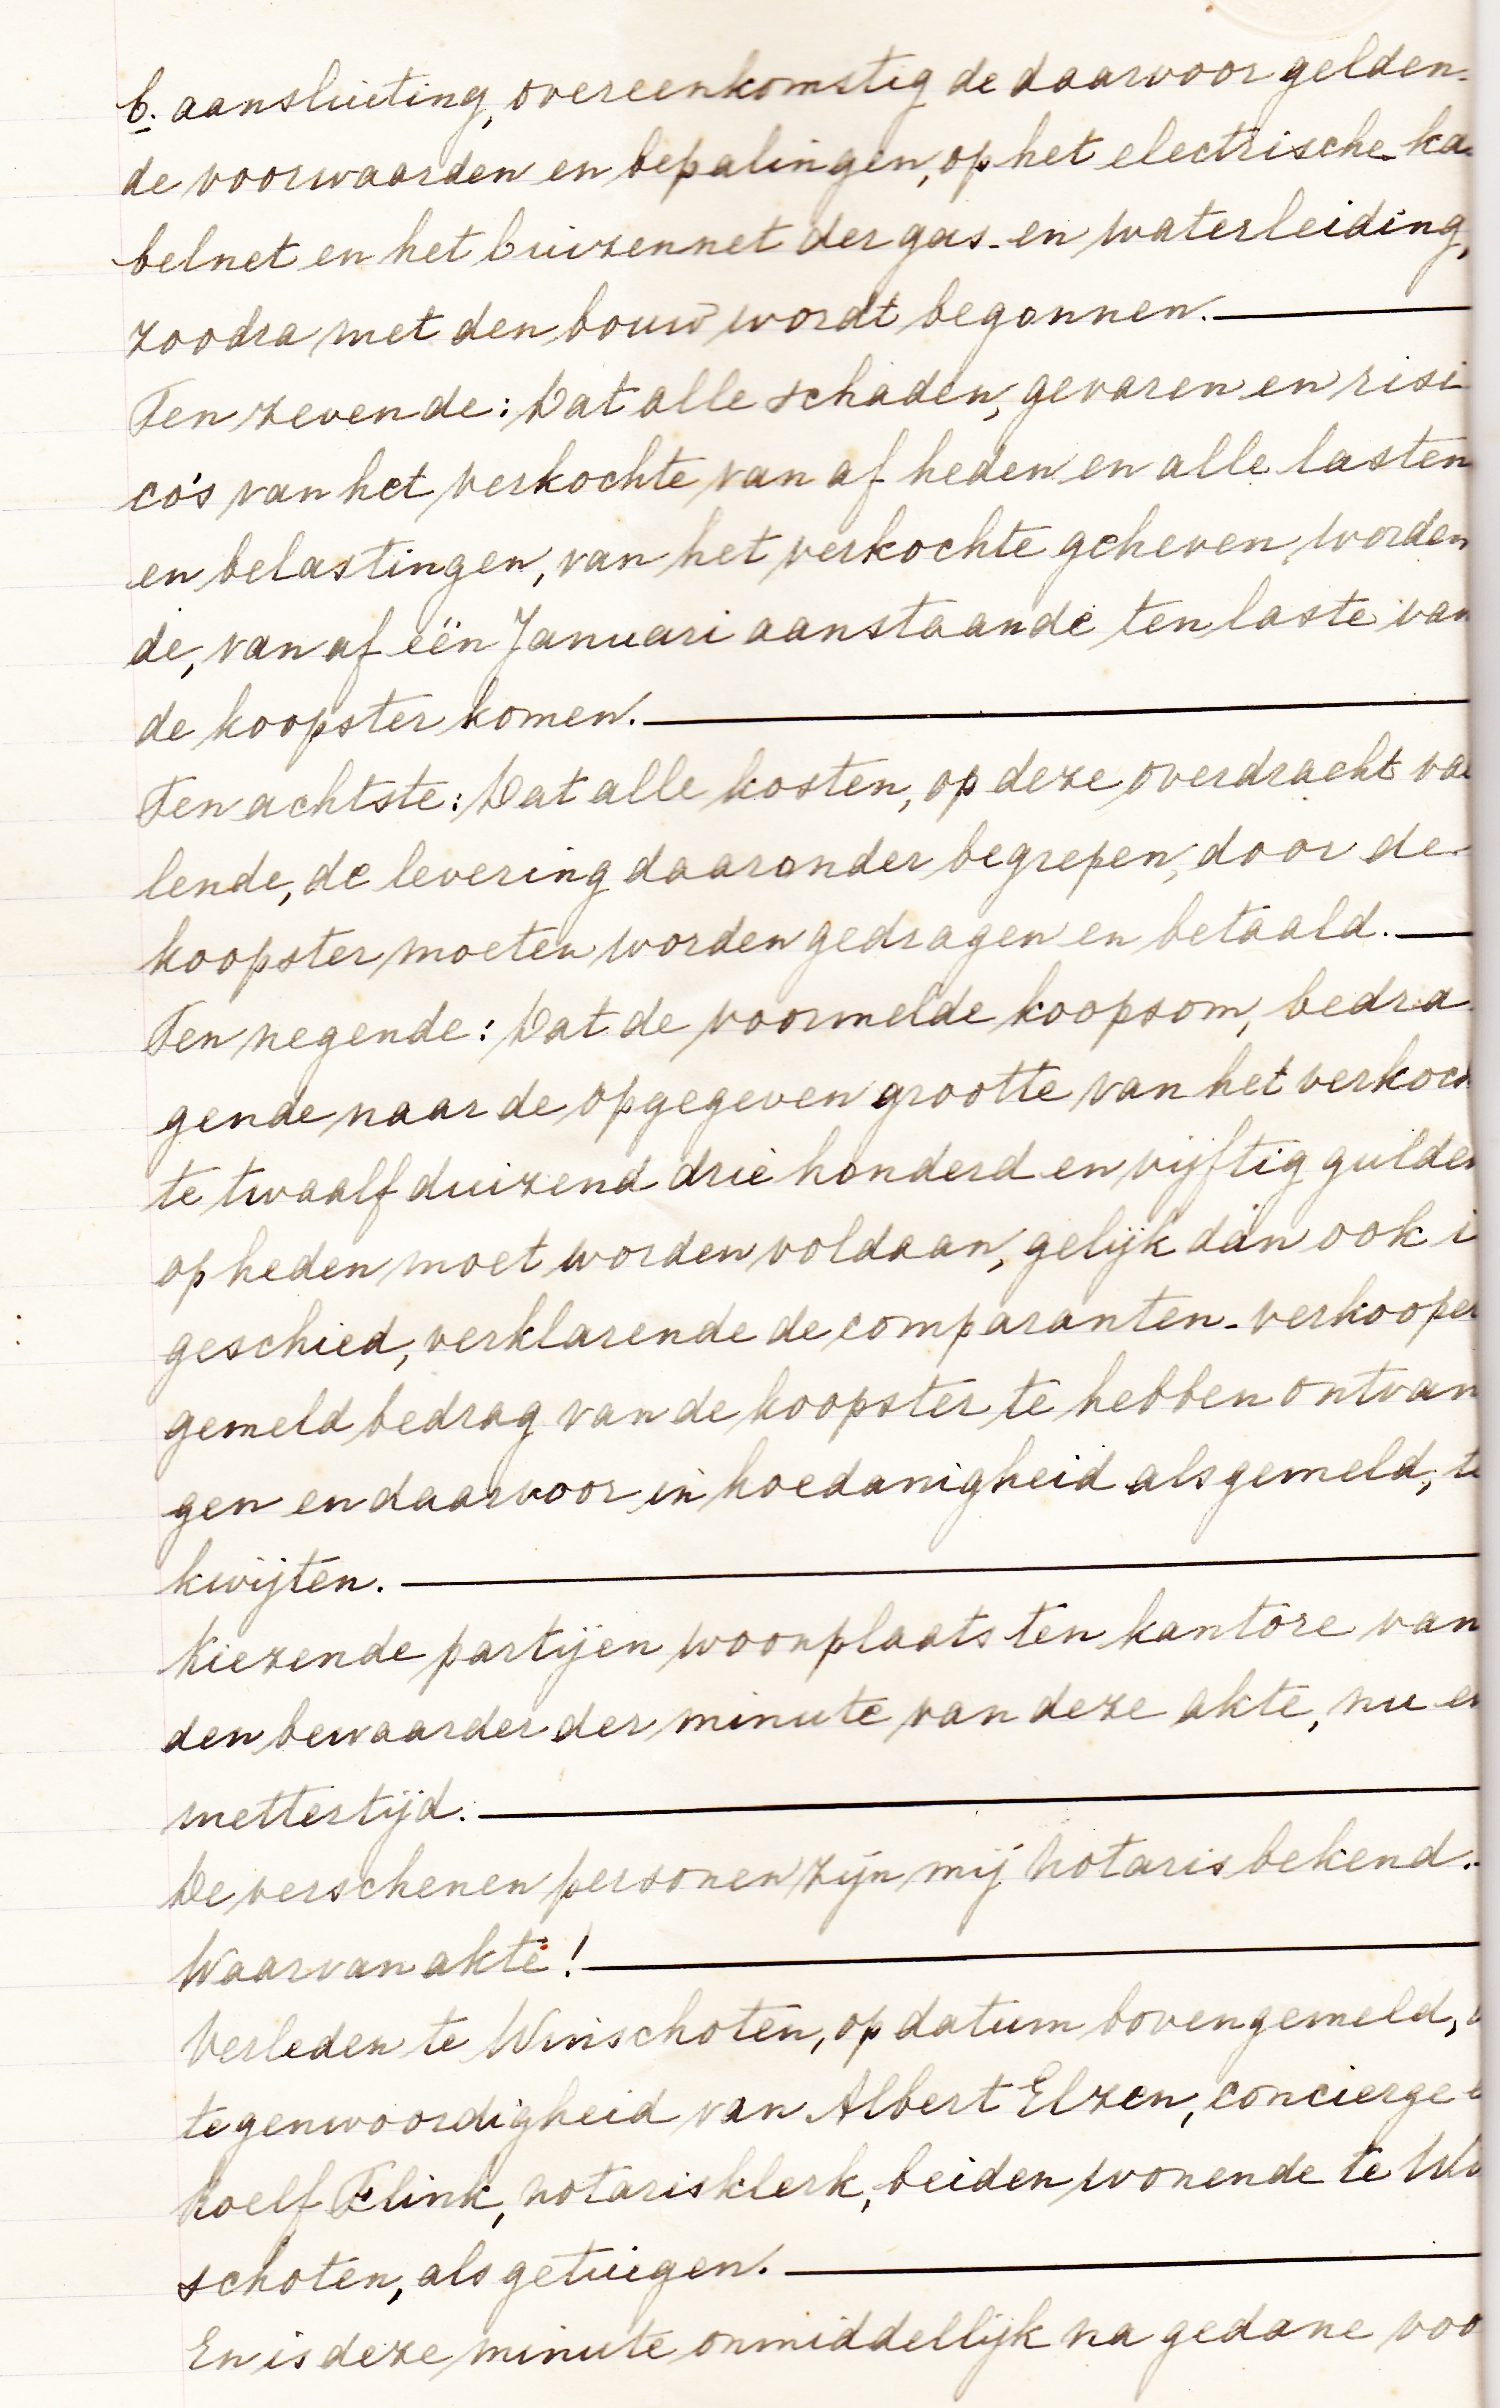 b. aansluiting, overeenkomstig de daarvoor gelden-
de voorwaarden en bepalingen, op het electrische ka-
belnet en het buizennet der gas- en waterleiding,
zoodra met den bouw wordt begonnen.
Ten zevende: Dat alle schaden, gevaren en risi
co's van het verkochte van af heden en alle lasten
en belastingen, van het verkochte geheven worden
de, van af één Januari aanstaande ten laste van
de koopster komen.
Ten achtste: Dat alle kosten, op deze overdracht val
lende, de levering daaronder begrepen, door de
koopster moeten worden gedragen en betaald.
Ten negende: Dat de voormelde koopsom, bedra
gende naar de opgegeven grootte van het verkoch
te twaalfduizend drie honderd en vijftig gulden
op heden moet worden voldaan, gelijk dan ook i
geschied, verklarende de comparanten-verkooper
gemeld bedrag van de koopster te hebben ontvan
gen en daarvoor in hoedanigheid als gemeld, te
kwijten.
Kiezende partijen woonplaats ten kantore van
den bewaarder der minute van deze akte, nu en
mettertijd.
De verschenen personen zijn mij notaris bekend.
Waarvan akte!
Verleden te Winschoten, op datum bovengemeld,
tegenwoordigheid van Albert Elzen, concierge
Roelf Flink, notarisklerk, beiden wonende te Win
schoten, als getuigen.
En is deze minute onmiddellijk na gedane voo